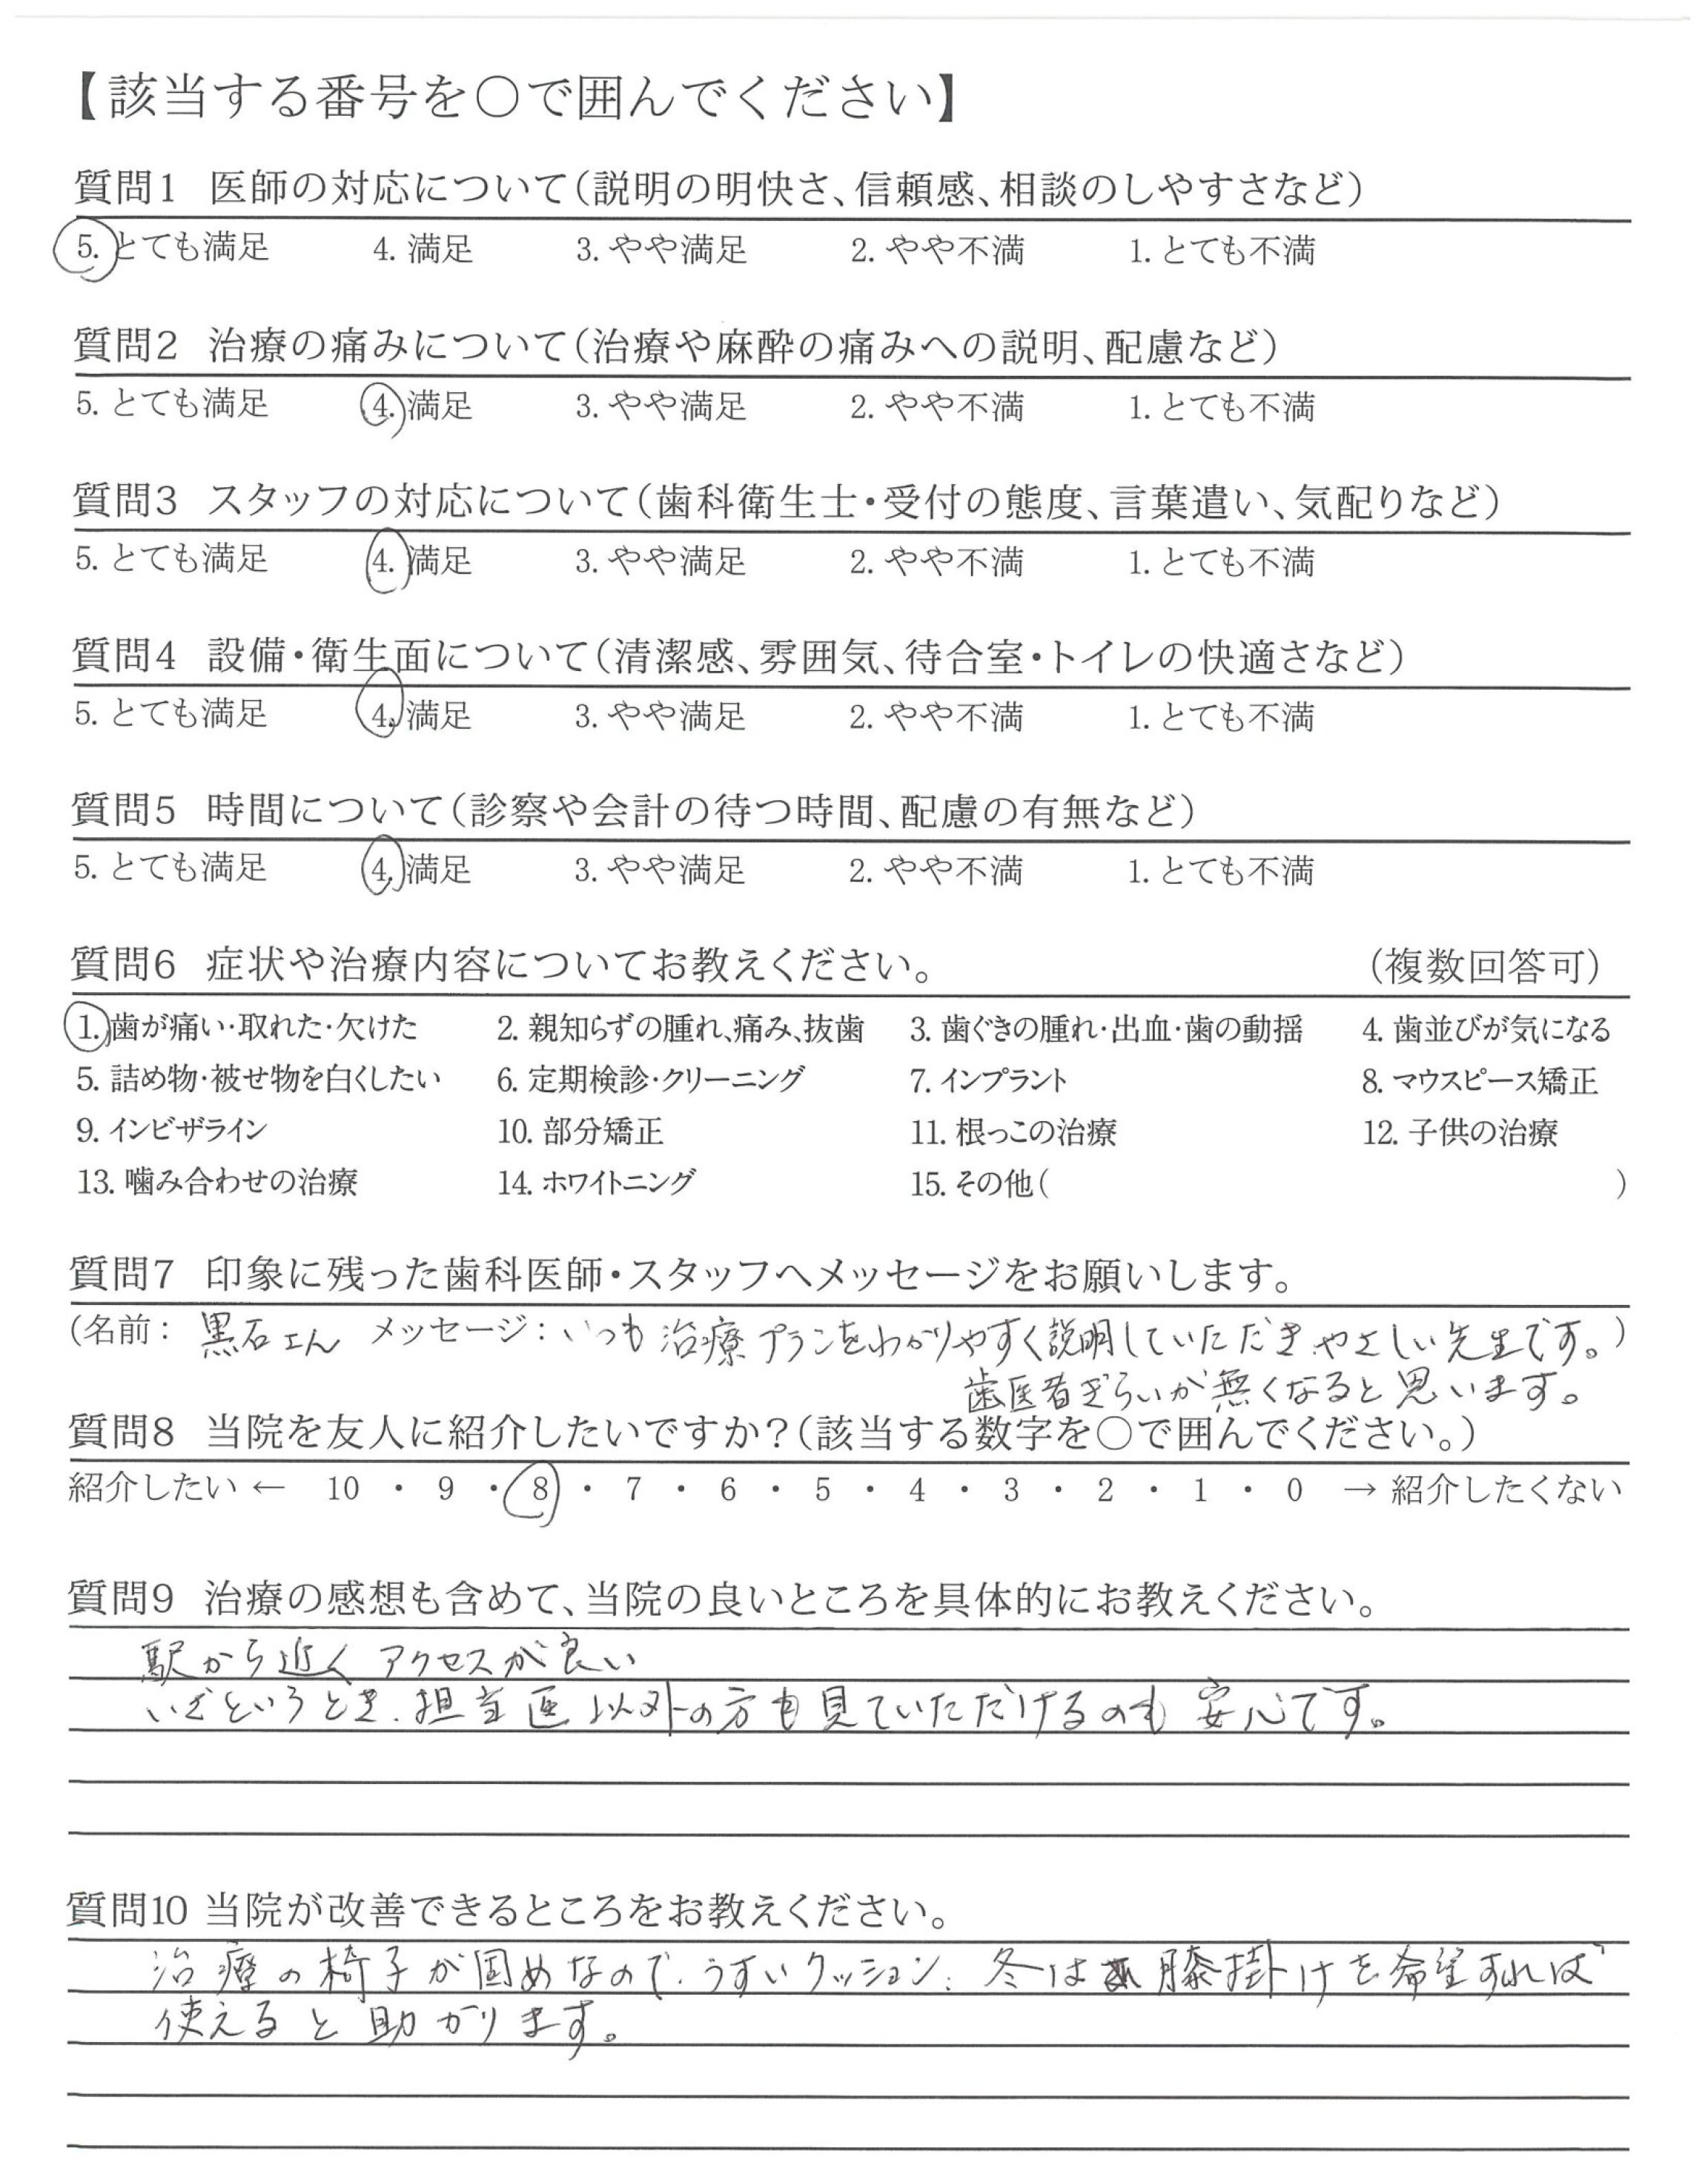 【該当する番号を〇で囲んでください】
質問1 医師の対応について(説明の明快さ、信頼感、相談のしやすさなど)
5. とても満足 4. 満足 3. やや満足 2. やや不満 1. とても不満
質問2 治療の痛みについて(治療や麻酔の痛みへの説明、配慮など)
5. とても満足 4. 満足 3. やや満足 2. やや不満 1. とても不満
質問3 スタッフの対応について(歯科衛生士・受付の態度、言葉遣い、気配りなど)
5. とても満足 4. 満足 3. やや満足 2. やや不満 1. とても不満
質問4 設備・衛生面について(清潔感、雰囲気、待合室・トイレの快適さなど)
5. とても満足 4. 満足 3. やや満足 2. やや不満 1. とても不満
質問5 時間について(診察や会計の待つ時間、配慮の有無など)
5. とても満足 4. 満足 3. やや満足 2. やや不満 1. とても不満
質問6 症状や治療内容についてお教えください。 (複数回答可)
1. 歯が痛い・取れた・欠けた 2. 親知らずの腫れ、痛み、抜歯 3. 歯ぐきの腫れ・出血・歯の動揺 4. 歯並びが気になる
5. 詰め物・被せ物を白くしたい 6. 定期検診・クリーニング 7. インプラント 8. マウスピース矯正
9. インビザライン 10. 部分矯正 11. 根っこの治療 12. 子供の治療
13. 噛み合わせの治療 14. ホワイトニング 15. その他( )
質問7 印象に残った歯科医師・スタッフへメッセージをお願いします。
(名前: 黒石さん メッセージ: いつも治療プランをわかりやすく説明していただきやさしい先生です。)
歯医者ぎらいが無くなると思います。
質問8 当院を友人に紹介したいですか?(該当する数字を〇で囲んでください。)
紹介したい ← 10 ・ 9 ・ 8 ・ 7 ・ 6 ・ 5 ・ 4 ・ 3 ・ 2 ・ 1 ・ 0 → 紹介したくない
質問9 治療の感想も含めて、当院の良いところを具体的にお教えください。
駅から近く アクセスが良い
いざというとき、担当医以外の方も見ていただけるのも安心です。
質問10 当院が改善できるところをお教えください。
治療の椅子が固めなので、うすいクッション、冬は膝掛けを希望すれば
使えると助かります。